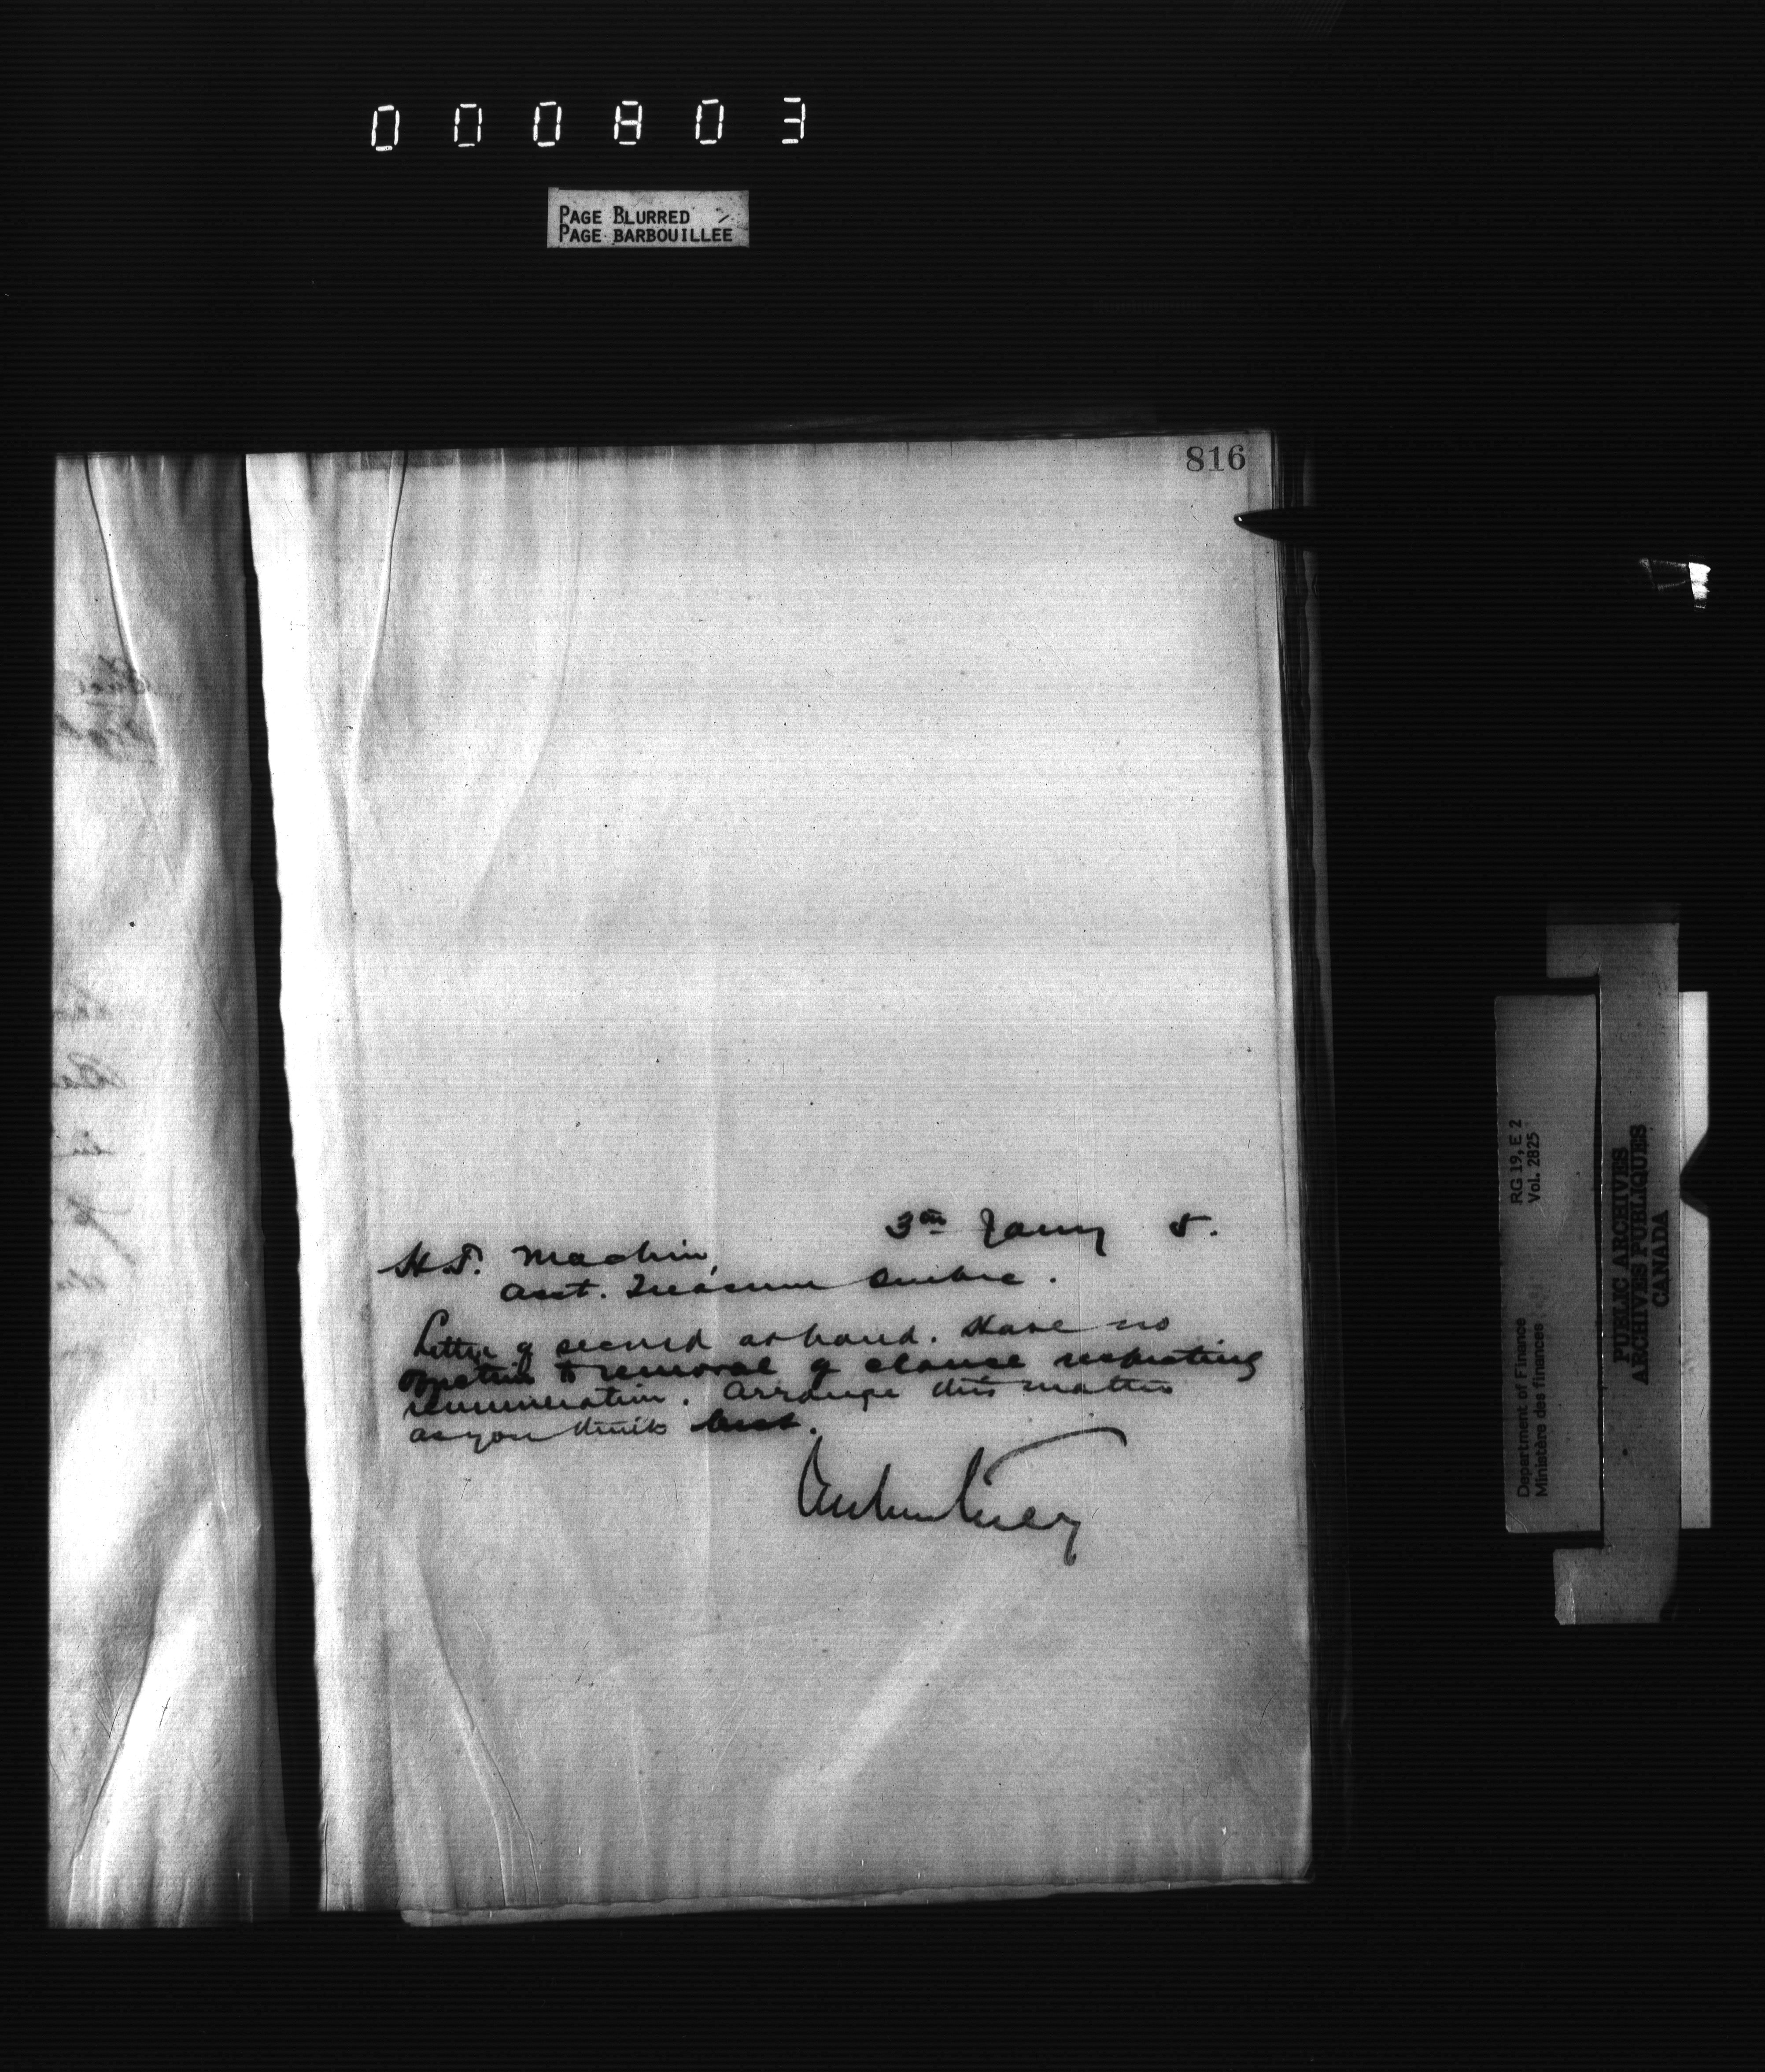 000803
PAGE BLURRED
PAGE BARBOUILLÉE
816
3rd Jany 5.
H.T. Machin,
Asst. Treasurer Quebec.
Letter of second at hand. Have no
objection to removal of clause respecting
remuneration. Arrange this matter
as you think best.
RG 19, E 2
Vol. 2825
Department of Finance
Ministère des finances
PUBLIC ARCHIVES
ARCHIVES PUBLIQUES
CANADA